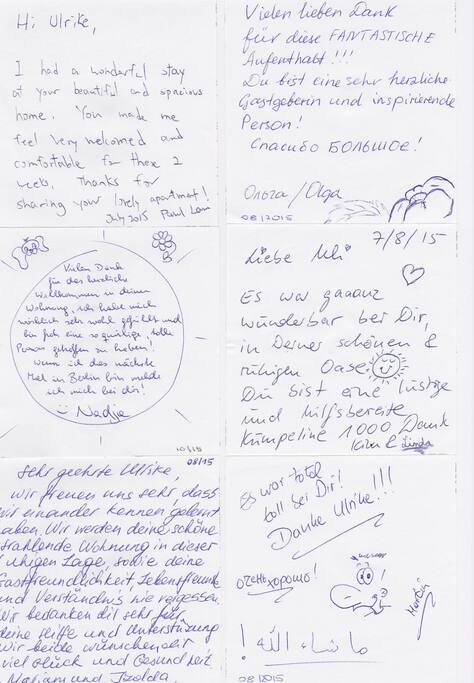 Hi Ulrike,
I had a wonderful stay
at your beautiful and spacious
home. You made me
feel very welcomed and
comfortable for these 2
weeks. Thanks for
sharing your lovely apartment!
July 2015
Vielen lieben Dank
für diese FANTASTISCHE
Aufenthalt!!!
Du bist eine sehr herzliche
Gastgeberin und inspirierende
Person!
Спасибо БОЛЬШОЕ!
Ольга/Olga
08/2015
Vielen Dank
für das herzliche
Willkommen in deiner
Wohnung, ich habe mich
wirklich sehr wohl gefühlt und
bin froh eine so gütige tolle
Person getroffen zu haben!
Wenn ich das nächste
Mal in Berlin bin melde
ich mich bei dir!
Nadja
10/15
7/8/15
Liebe Uli
Es war gaaanz
wunderbar bei Dir,
in Deiner schönen &
ruhigen Oase
Du bist eine lustige
und hilfsbereite
Kumpeline 1000 Dank
Kim & Linda
08/15
Sehr geehrte Ulrike,
wir freuen uns sehr, dass
wir einander kennen gelernt
haben. Wir werden deine schöne
strahlende Wohnung in dieser
ruhigen Lage, sowie deine
Gastfreundlichkeit Lebensfreude
und Verständnis nie vergessen.
Wir bedanken dir sehr für
deine Hilfe und Unterstützung
Wir beide wünschen dir
viel Glück und Gesundheit.
Mariam und Izolda.
Es war total
toll bei Dir!
Danke Ulrike...!!!
очень хорошо!
Martin
ما شاء الله!
08/2015